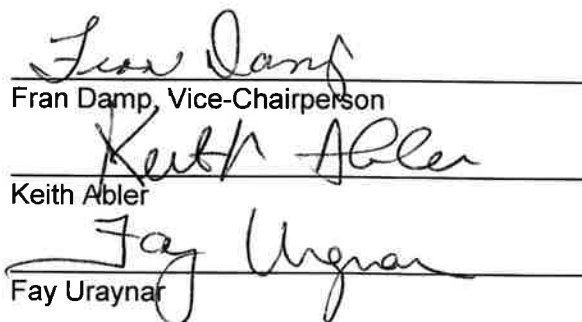 Fran Damp
Fran Damp, Vice-Chairperson
Keith Abler
Keith Abler
Fay Uraynar
Fay Uraynar